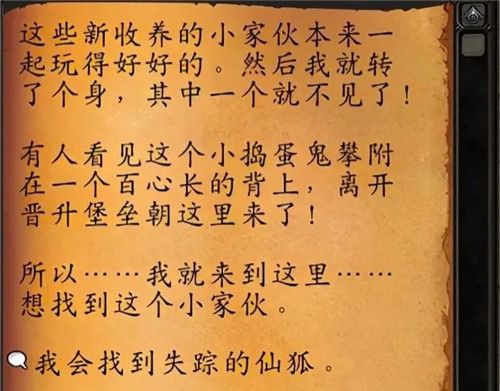 这些新收养的小家伙本来一
起玩得好好的。然后我就转
了个身，其中一个就不见了！
有人看见这个小捣蛋鬼攀附
在一个百心长的背上，离开
晋升堡垒朝这里来了！
所以……我就来到这里……
想找到这个小家伙。
我会找到失踪的仙狐。